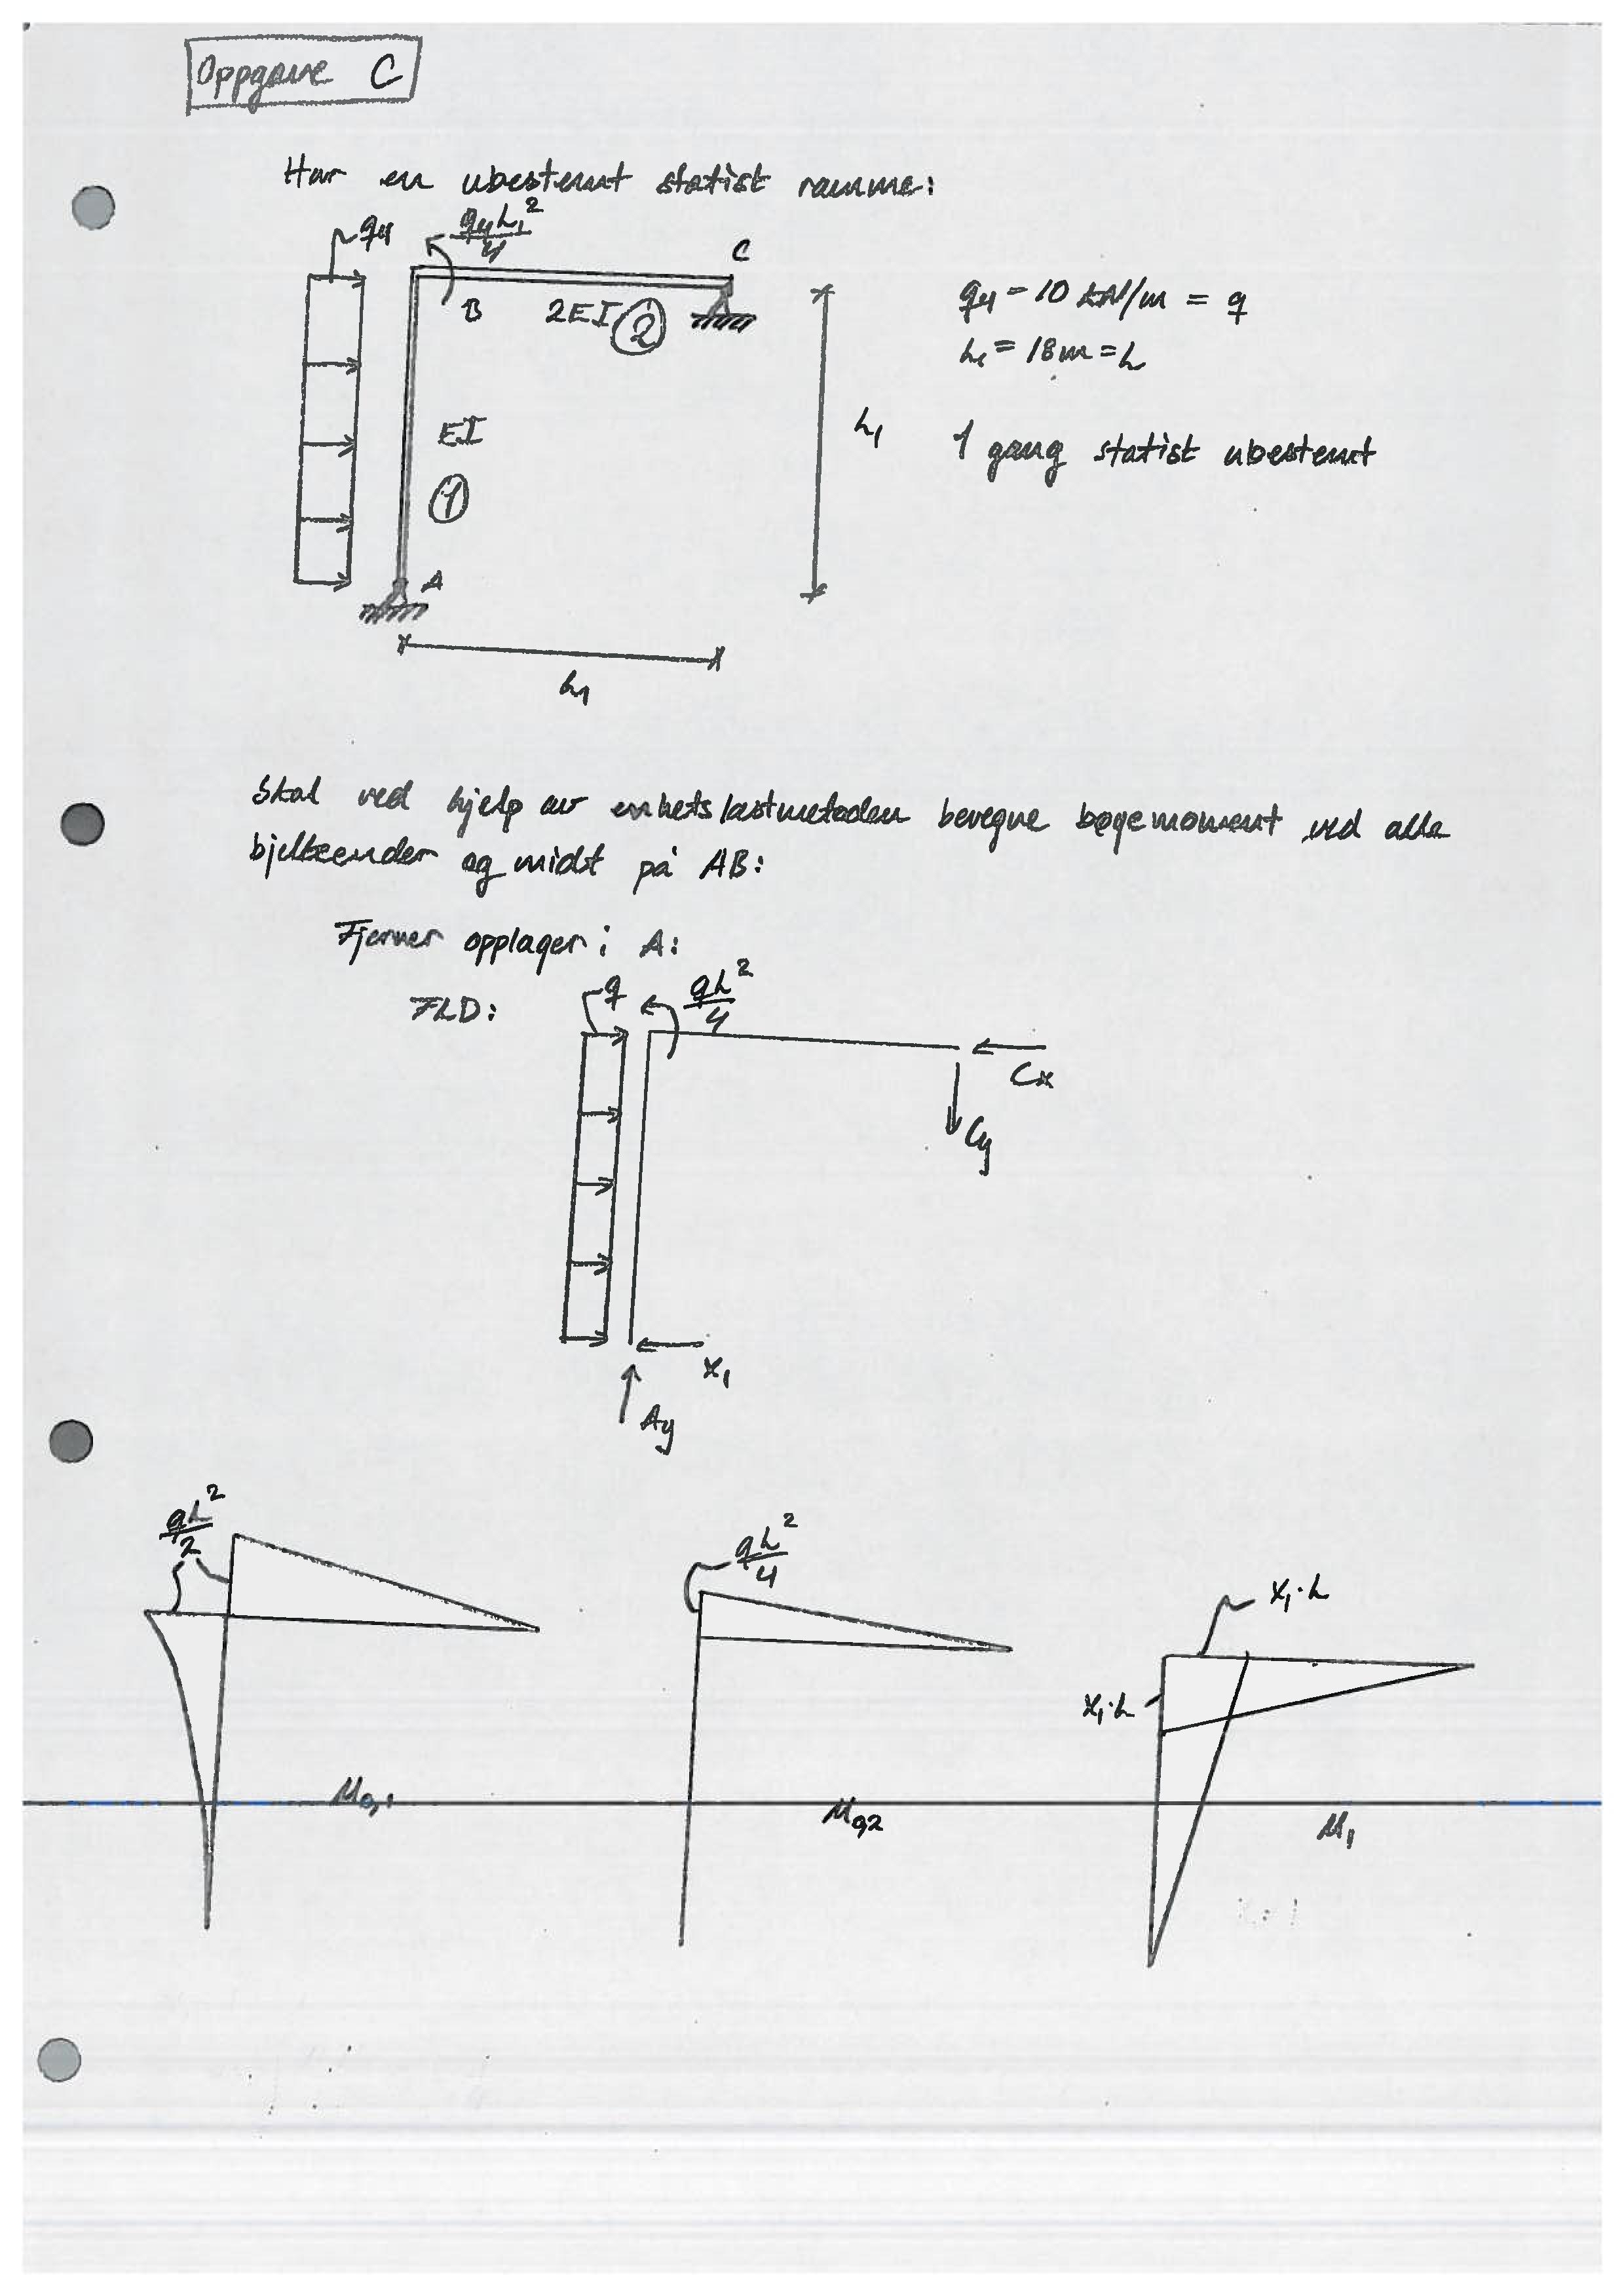 Oppgave C
Har en ubestemt statisk ramme:
q4
q4L1²/4
C
B
2EI ②
q4 = 10 kN/m = q
L1 = 18m = L
EI
L1
1 gang statisk ubestemt
①
A
L1
Skal ved hjelp av enhetslastmetoden beregne bøyemoment ved alle
bjelkeender og midt på AB:
Fjerner opplager i A:
FLD:
q
qL²/4
Cx
Cy
x1
Ay
qL²/2
qL²/4
x1·L
x1·L
M0,1
M02
M1